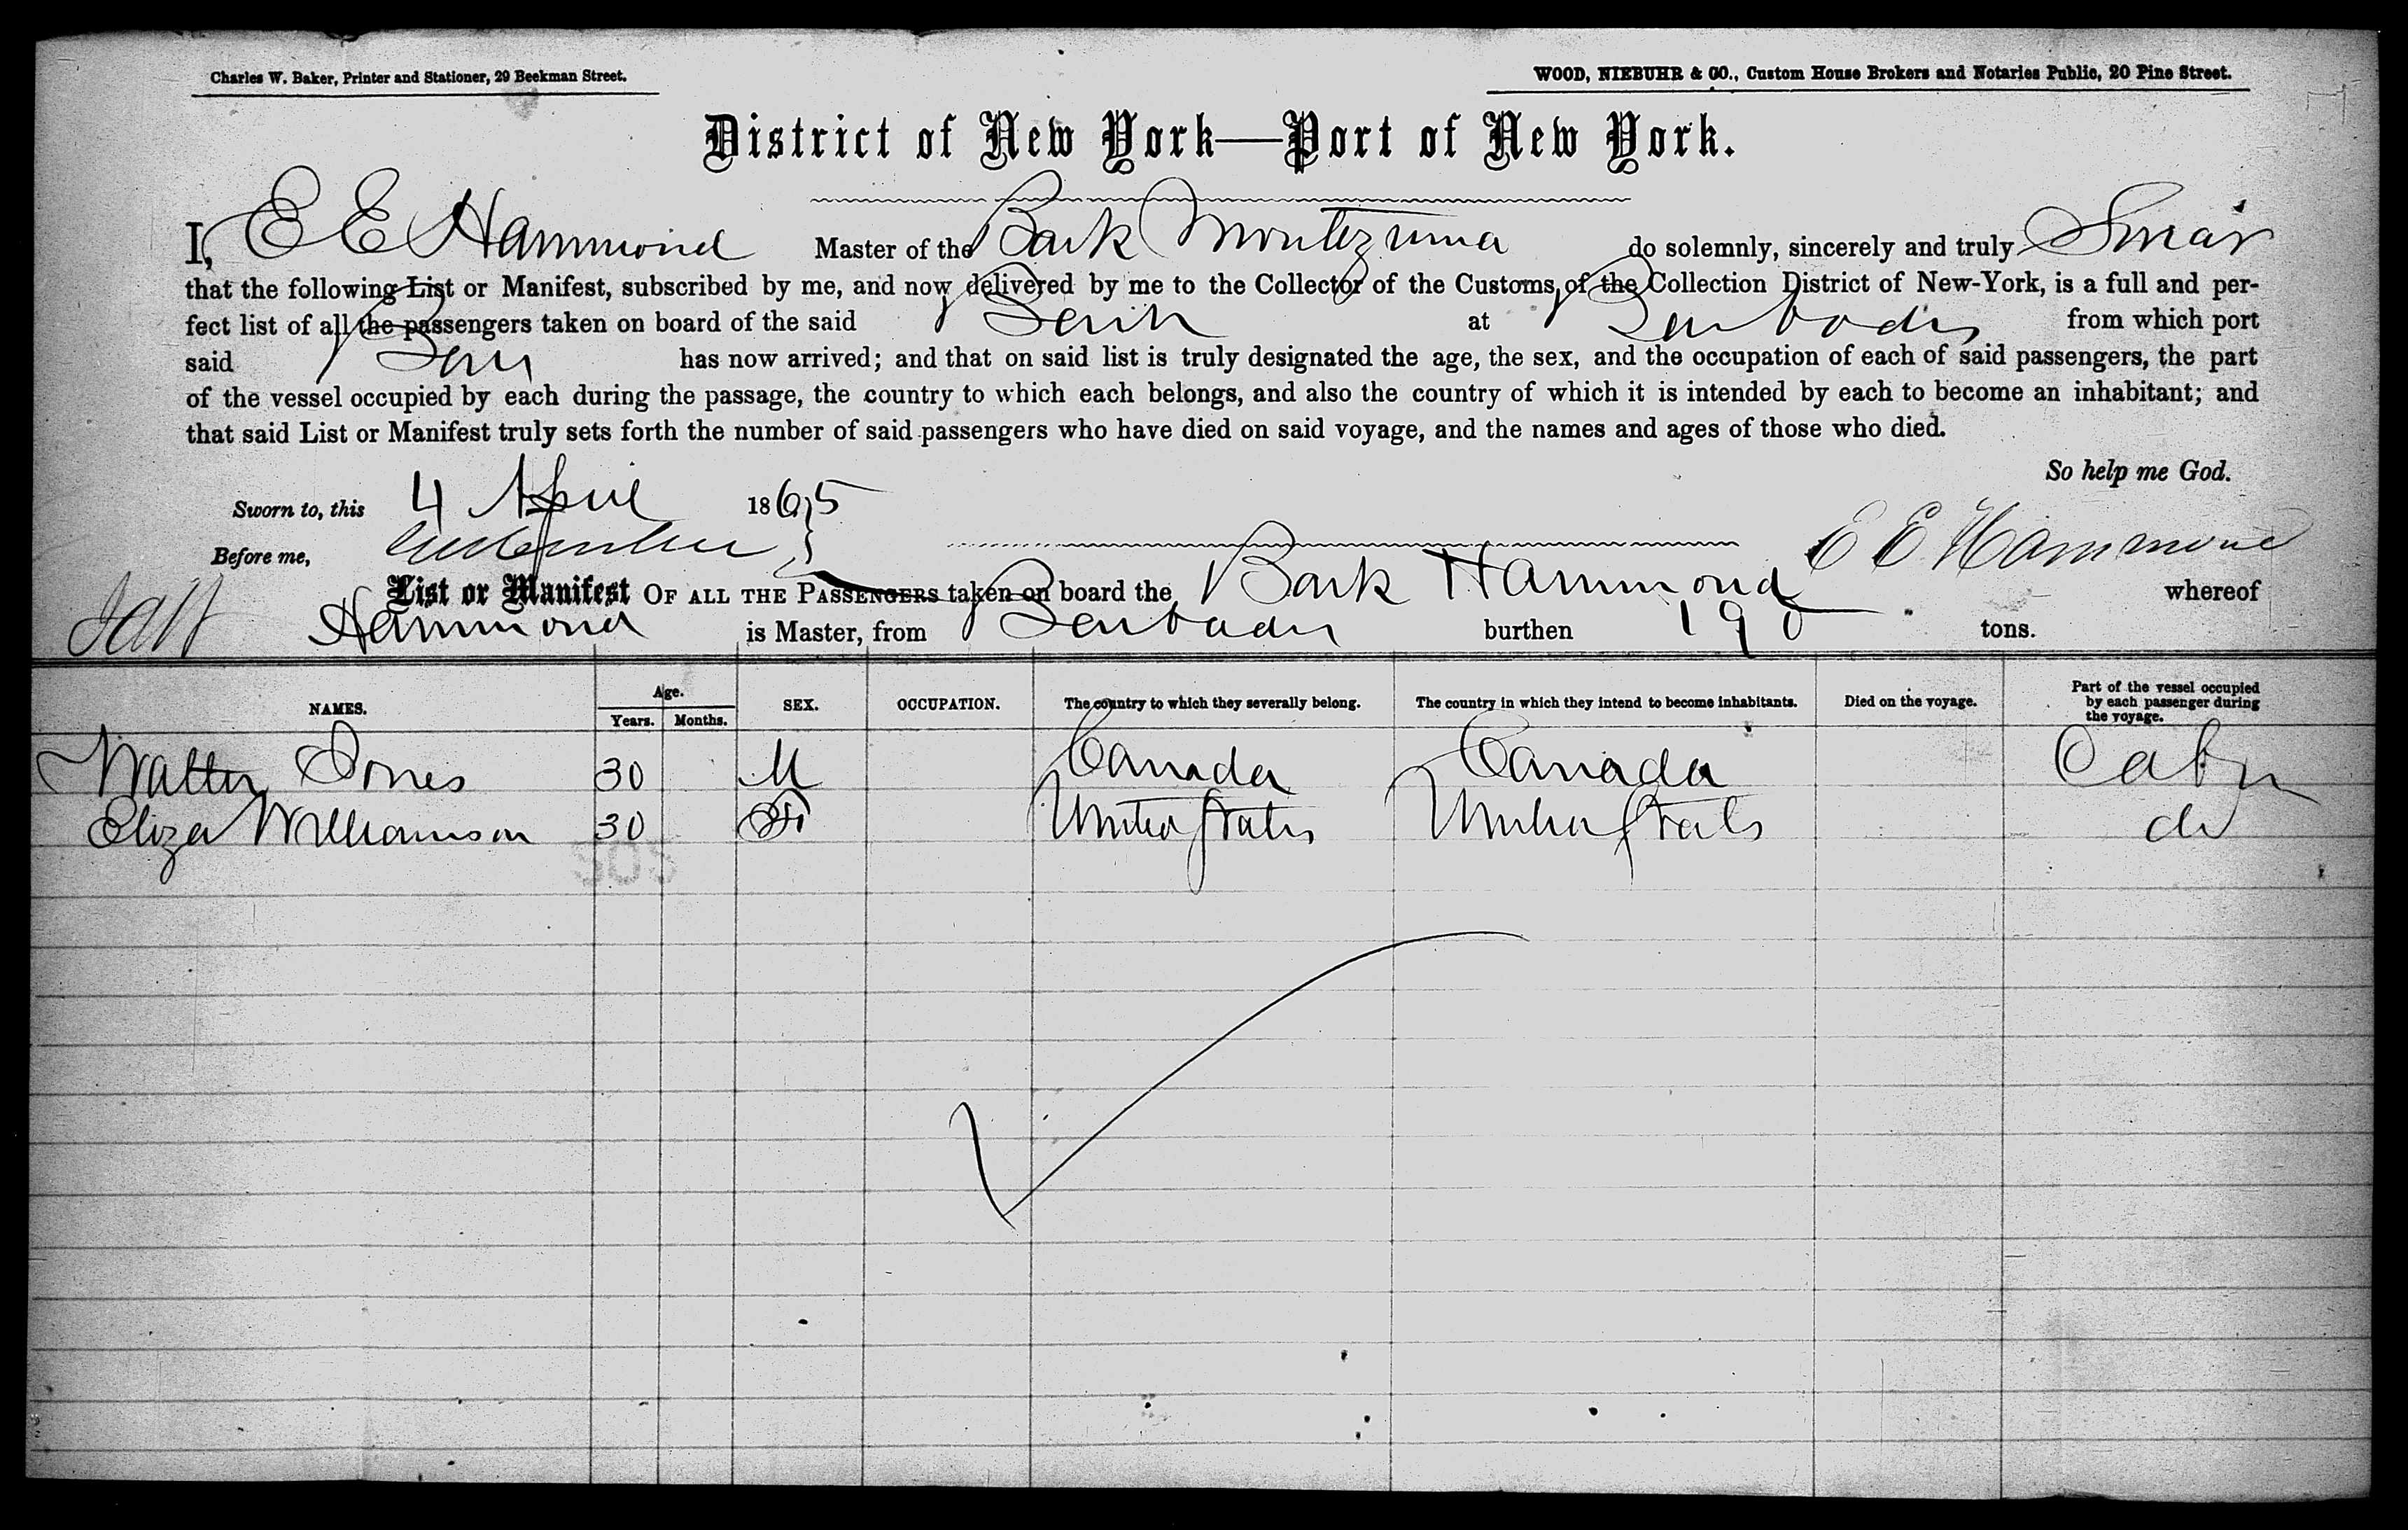 Charles W. Baker, Printer and Stationer, 29 Beekman Street.
WOOD, NIEBUHR & CO., Custom House Brokers and Notaries Public, 20 Pine Street.
District of New York—Port of New York.
I, E E Hammond Master of the Bark Montezuma do solemnly, sincerely and truly Swear
that the following List or Manifest, subscribed by me, and now delivered by me to the Collector of the Customs, of the Collection District of New-York, is a full and per-
fect list of all the passengers taken on board of the said Bark at Barbados from which port
said Bark has now arrived; and that on said list is truly designated the age, the sex, and the occupation of each of said passengers, the part
of the vessel occupied by each during the passage, the country to which each belongs, and also the country of which it is intended by each to become an inhabitant; and
that said List or Manifest truly sets forth the number of said passengers who have died on said voyage, and the names and ages of those who died.
So help me God.
Sworn to, this 4 April 1865
Before me, E E Hammond
List or Manifest OF ALL THE PASSENGERS taken on board the Bark Hammond whereof
Hammond is Master, from Barbados burthen 190 tons.
NAMES. Age. Years. Months. SEX. OCCUPATION. The country to which they severally belong. The country in which they intend to become inhabitants. Died on the voyage. Part of the vessel occupied by each passenger during the voyage.
Walter Jones 30 M Canada Canada Cabin
Eliza Williamson 30 F United States United States do